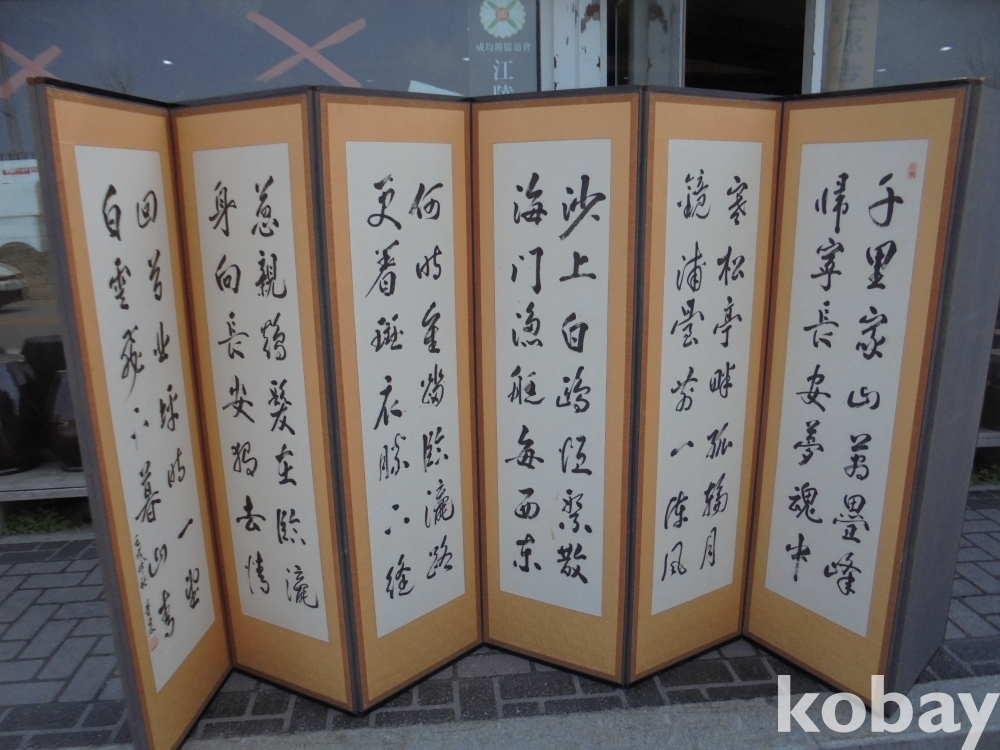 成均館儒道會
江陵
千里家山萬疊峰
帰寧長安夢魂中
寒松亭畔孤輪月
鏡浦臺前一陣風
沙上白鷗恒聚散
海門漁艇每西東
何時重踏臨瀛路
更着斑衣膝下縫
慈親鶴髮在臨瀛
身向長安獨去情
回首北坪時一望
白雲飛下暮山青
kobay